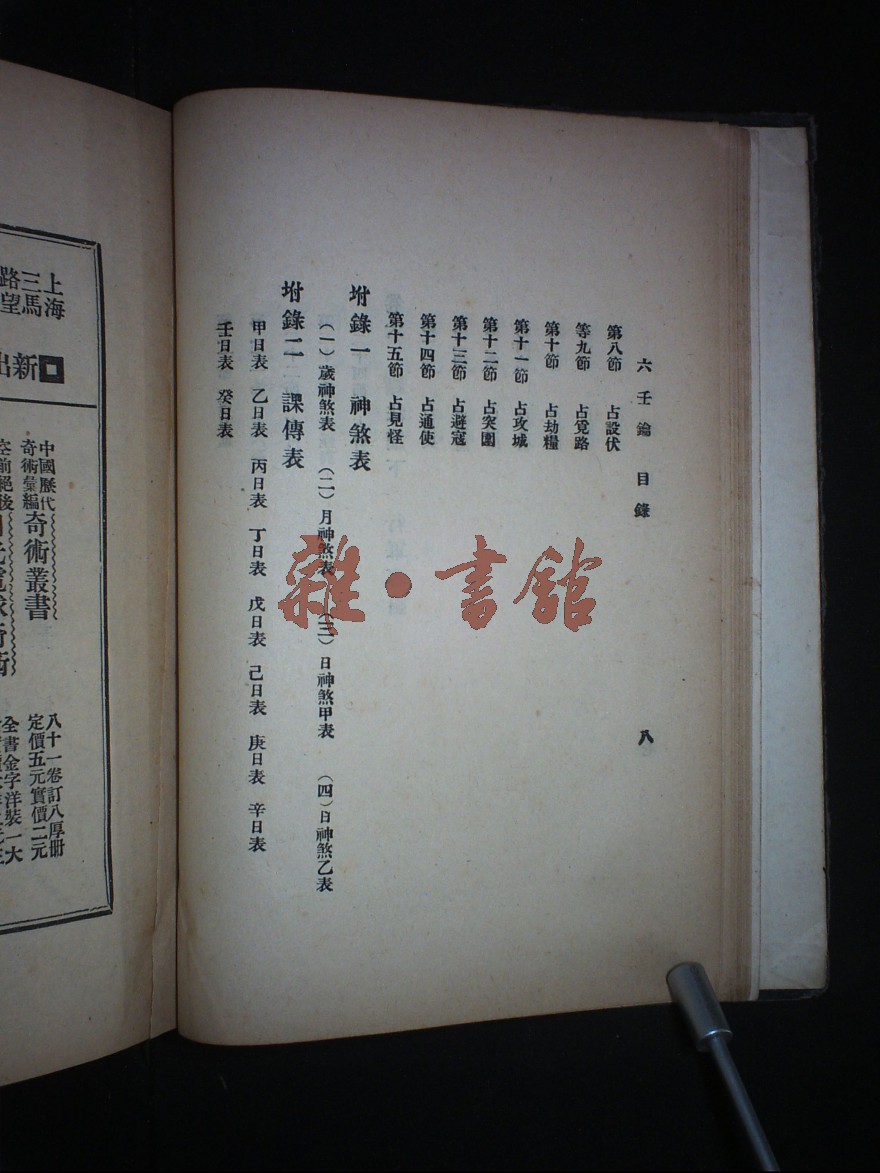 六壬鑰 目錄 八
第八節 占設伏
等九節 占覓路
第十節 占劫糧
第十一節 占攻城
第十二節 占突圍
第十三節 占避寇
第十四節 占通使
第十五節 占見怪
坿錄一 神煞表
（一）歲神煞表 （二）月神煞表 （三）日神煞甲表 （四）日神煞乙表
坿錄二 課傳表
甲日表 乙日表 丙日表 丁日表 戊日表 己日表 庚日表 辛日表
壬日表 癸日表
雜·書館
上海
三馬
路望
新出
中國歷代
奇術彙編
奇術叢書
空前絕後
八十一卷訂八厚册
定價五元實價二元
全書金字洋裝一大